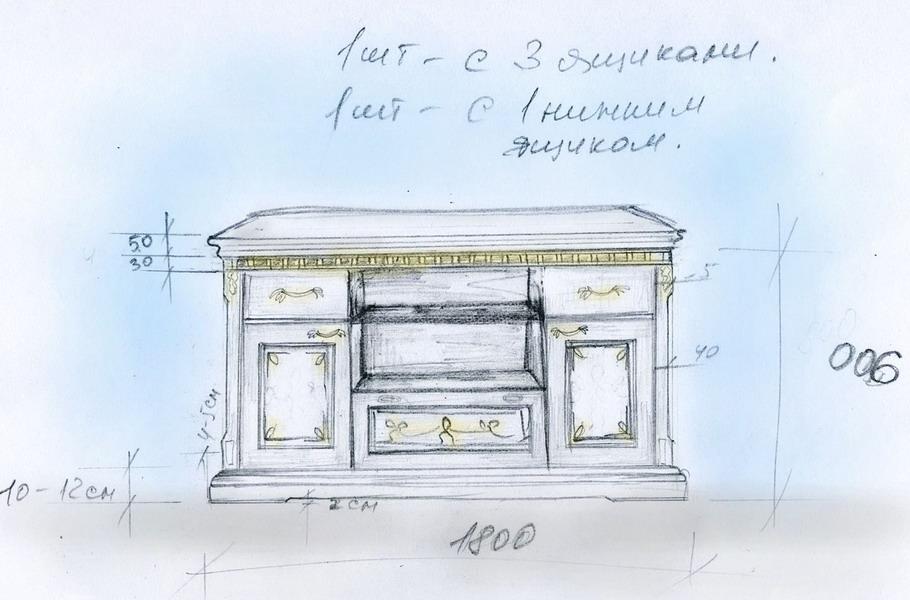 1шт - с 3 ящиками.
1шт - с 1 нижним
ящиком.
50
30
5
40
900
4-5см
10-12см
2 см
1800